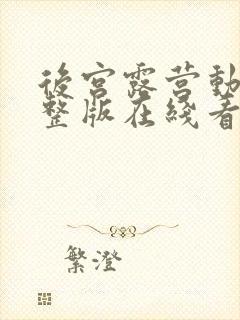 後宮露营動
整版在綫看
繁澄